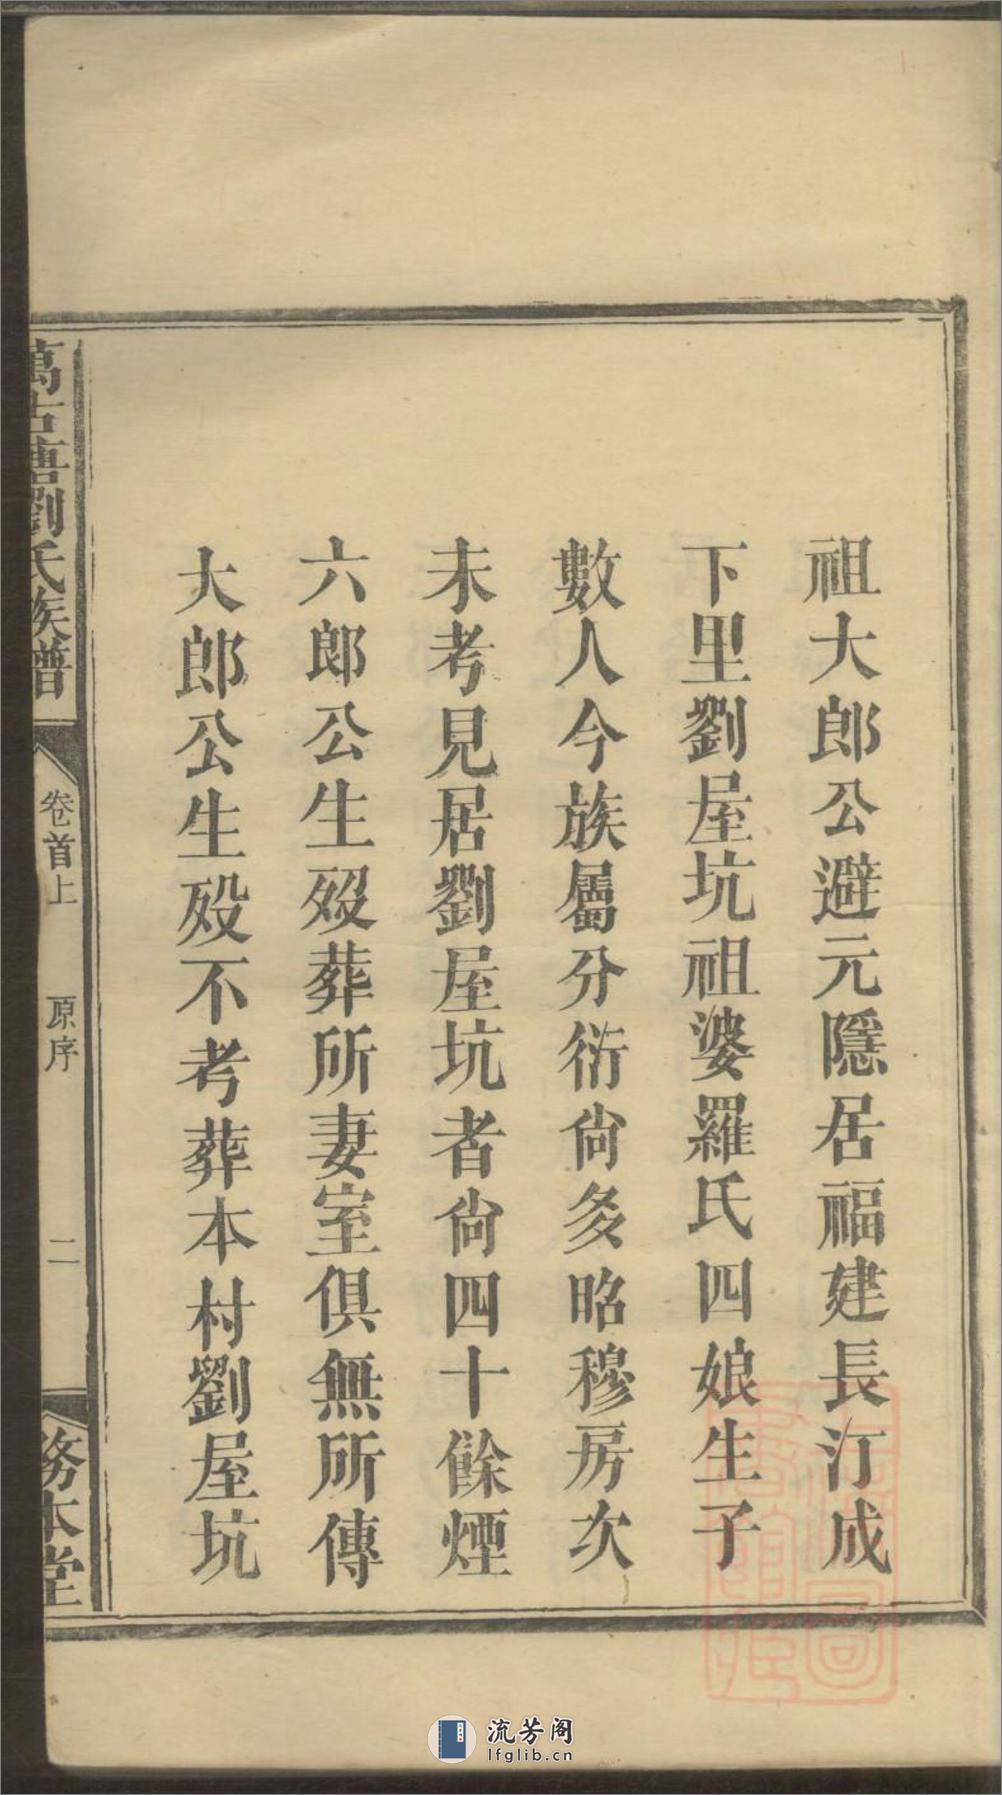 祖大郎公避元隱居福建長汀成
下里劉屋坑祖婆羅氏四娘生子
數人今族屬分衍尙多昭穆房次
未考見居劉屋坑者尙四十餘煙
六郎公生歿葬所妻室俱無所傳
大郎公生歿不考葬本村劉屋坑
萬古塘劉氏族譜
卷首上
原序
二
務本堂
流芳阁
lfglib.cn